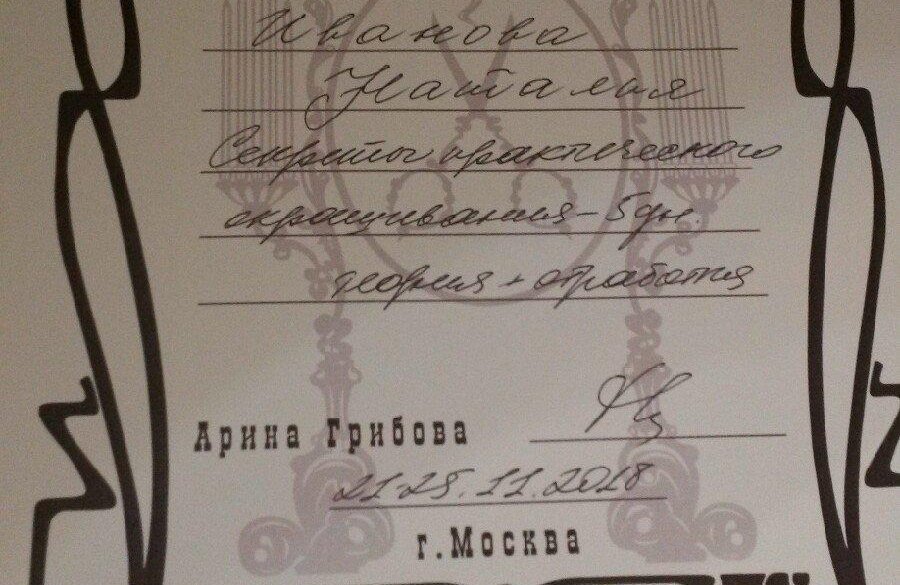 Иванова
Наталья
Секреты практического
окрашивания - 5 дн.
теория + отработка
Арина Грибова
21-25.11.2018
г.Москва